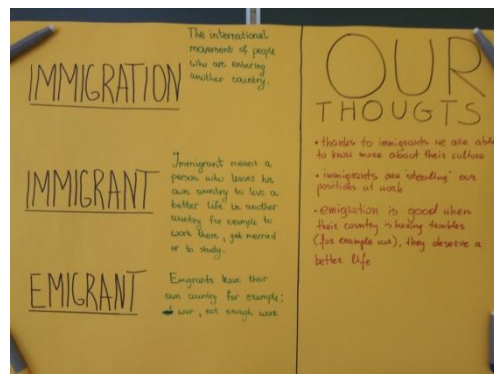 IMMIGRATION
The international
movement of people
who are entering
another country.
IMMIGRANT
Immigrant means a
person who leaves his
own country to live a
better life in another
country for example to
work there, get married
or to study.
EMIGRANT
Emigrants leave their
own country for example:
war, not enough work
OUR
THOUGTS
• thanks to immigrants we are able
to know more about their culture
• immigrants are 'stealing' our
positions at work
• emigration is good when
their country is having troubles
(for example war), they deserve a
better life